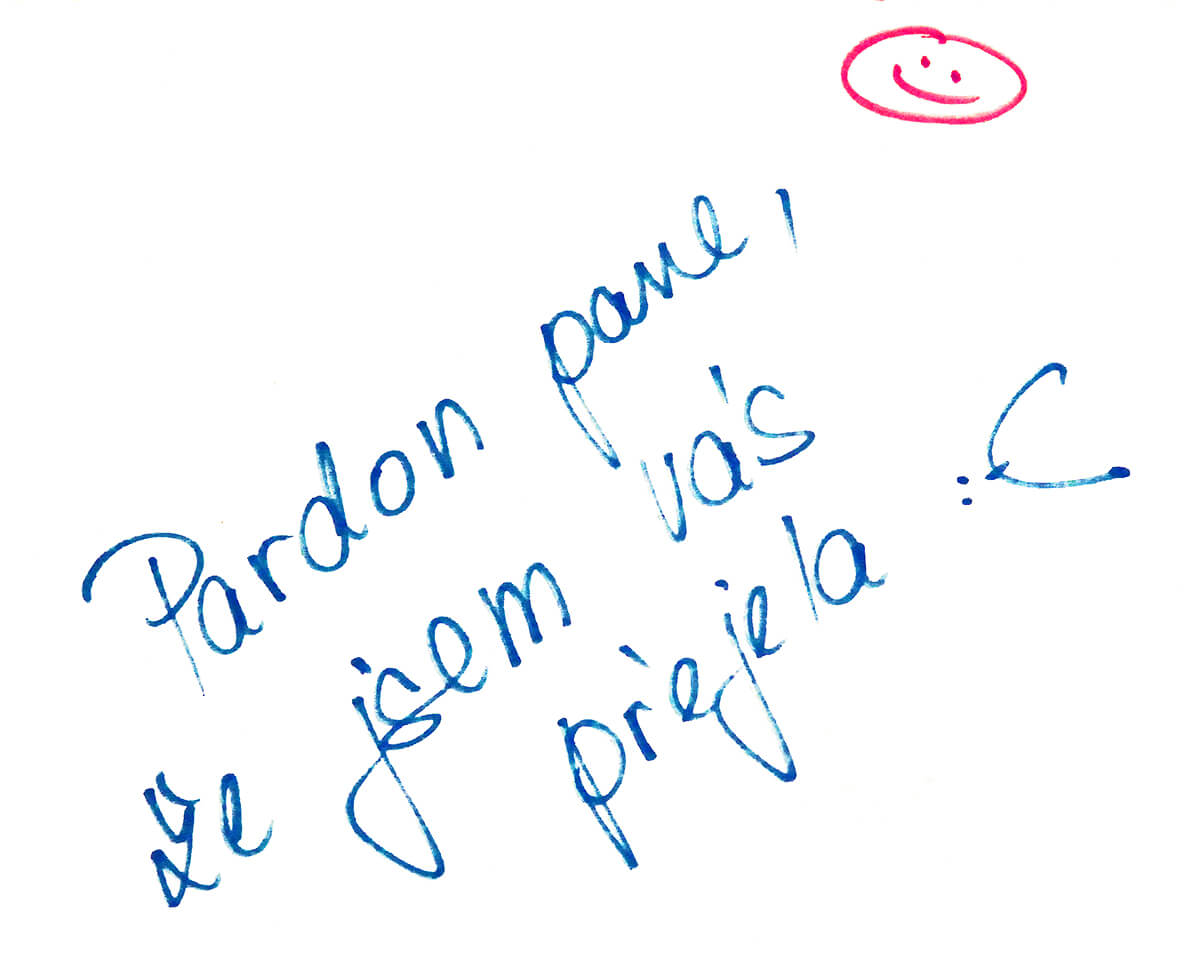 Pardon pane,
že jsem vás
přejela :C